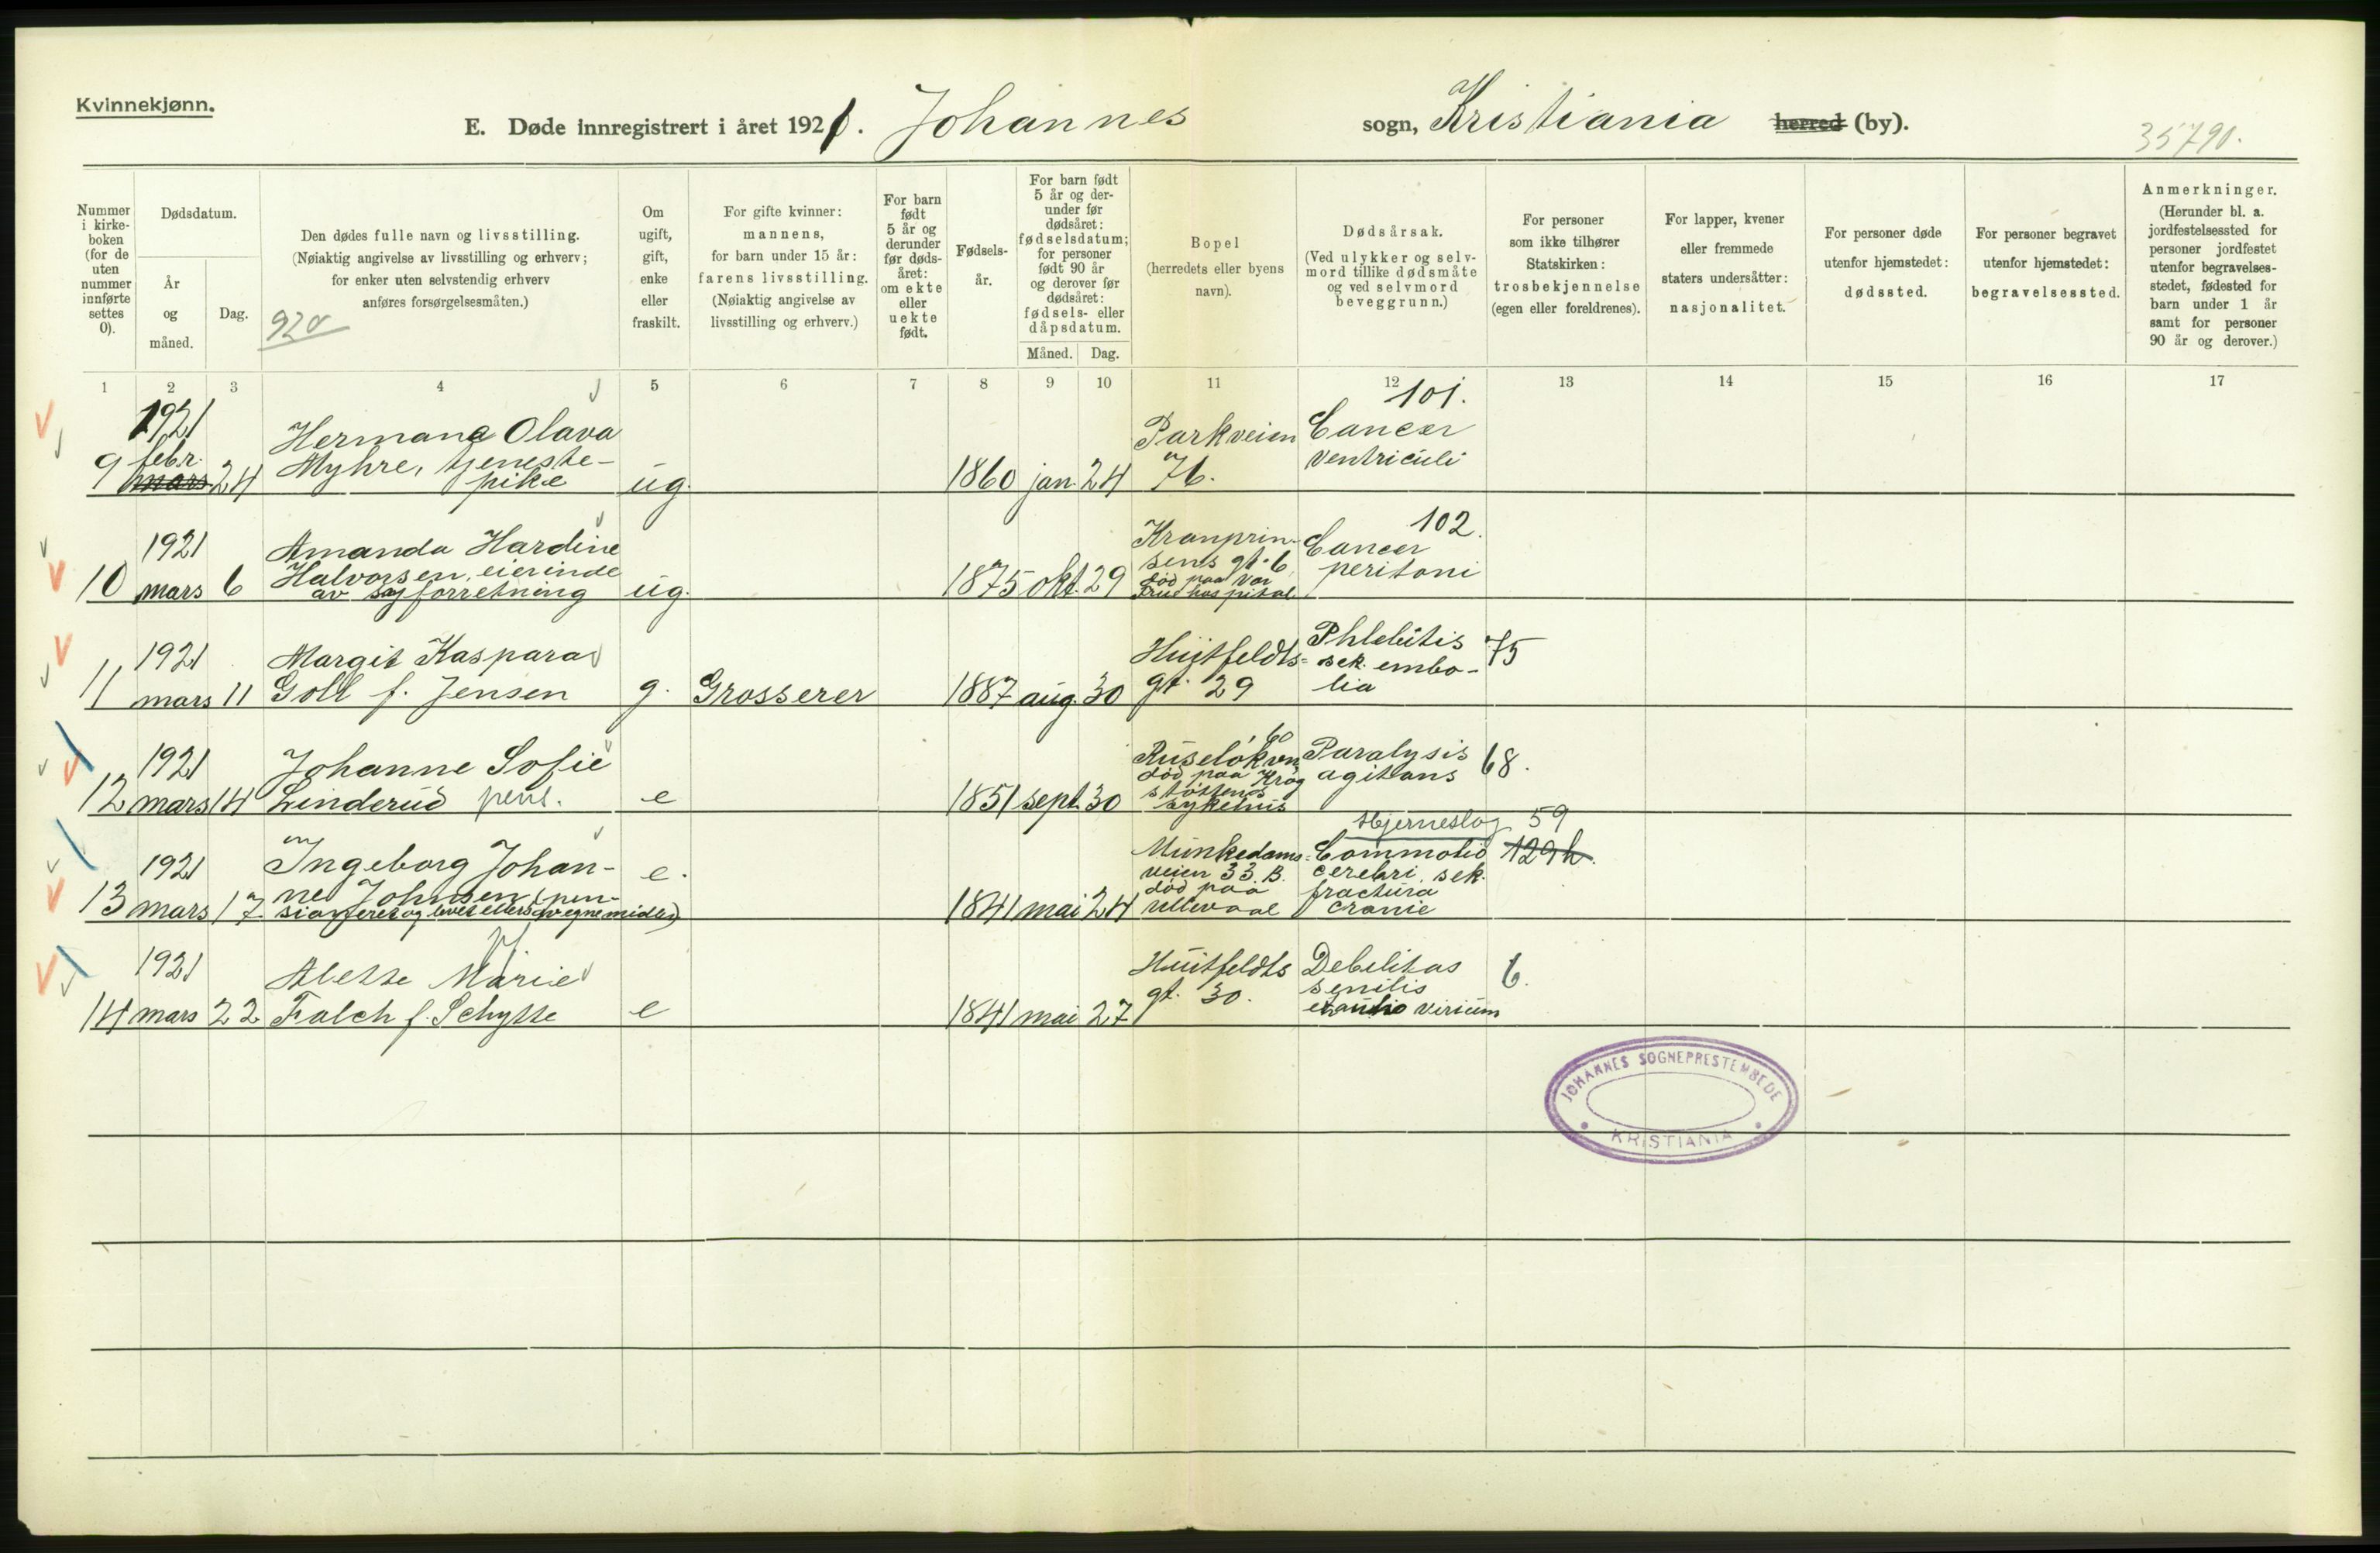 Kvinnekjønn.
E. Døde innregistrert i året 1921. Johannes sogn, Kristiania herred (by).
35790.
Nummer i kirke- boken (for de uten nummer innførte settes 0).
Dødsdatum.
År og måned.
Dag.
Den dødes fulle navn og livsstilling.
(Nøiaktig angivelse av livsstilling og erhverv;
for enker uten selvstendig erhverv
anføres forsørgelsesmåten.)
920
Om ugift, gift, enke eller fraskilt.
For gifte kvinner: mannens, for barn under 15 år: farens livsstilling. (Nøiaktig angivelse av livsstilling og erhverv.)
For barn født 5 år og derunder før døds- året: om ekte eller uekte født.
Fødsels- år.
For barn født 5 år og der- under før dødsåret: fødselsdatum; for personer født 90 år og derover før dødsåret: fødsels- eller dåpsdatum.
Måned. Dag.
Bopel (herredets eller byens navn).
Dødsårsak. (Ved ulykker og selv- mord tillike dødsmåte og ved selvmord beveggrunn.)
For personer som ikke tilhører Statskirken: trosbekjennelse (egen eller foreldrenes).
For lapper, kvener eller fremmede staters undersåtter: nasjonalitet.
For personer døde utenfor hjemstedet: dødssted.
For personer begravet utenfor hjemstedet: begravelsessted.
Anmerkninger. (Herunder bl. a. jordfestelsessted for personer jordfestet utenfor begravelses- stedet, fødested for barn under 1 år samt for personer 90 år og derover.)
1 2 3 4 5 6 7 8 9 10 11 12 13 14 15 16 17
101.
1921 Hermana Olava Parkveien Cancer
febr. Myhre, tjeneste- ventriculi
9 mars 24 pike ug. 1860 jan. 24 76.
102.
1921 Amanda Hardine Kronprin- Cancer
Halvorsen, eierinde sens gt. 6 peritoni
10 mars 6 av syforretning ug. 1875 okt. 29 død paa Vor
Frue hospital
1921 Margit Kaspara Huitfeldts- Phlebitis 75
sek. embo-
11 mars 11 Goll f. Jensen g. Grosserer 1887 aug. 30 gt. 29 lia
60
1921 Johanne Sofie Ruseløkvn. Paralysis 68.
død paa Krog agitans
12 mars 14 Linderud pens. e 1851 sept. 30 støttens
sykehus
Hjerneslag 59
1921 Ingeborg Johan- e. Munkedams- Commotio 129h.
veien 33.B. cerebri sek.
ne Johnsen (pen- død paa fractura
13 mars 17 sioneret og levet ellers av egne midler) 1841 mai 24 Ullevaal cranie
pf.
1921 Alette Marie Huitfeldts Debilitas 6.
senilis
14 mars 22 Falch f. Schytte e 1841 mai 27 gt. 30. virium
JOHANNES SOGNEPRESTEMBEDE
KRISTIANIA